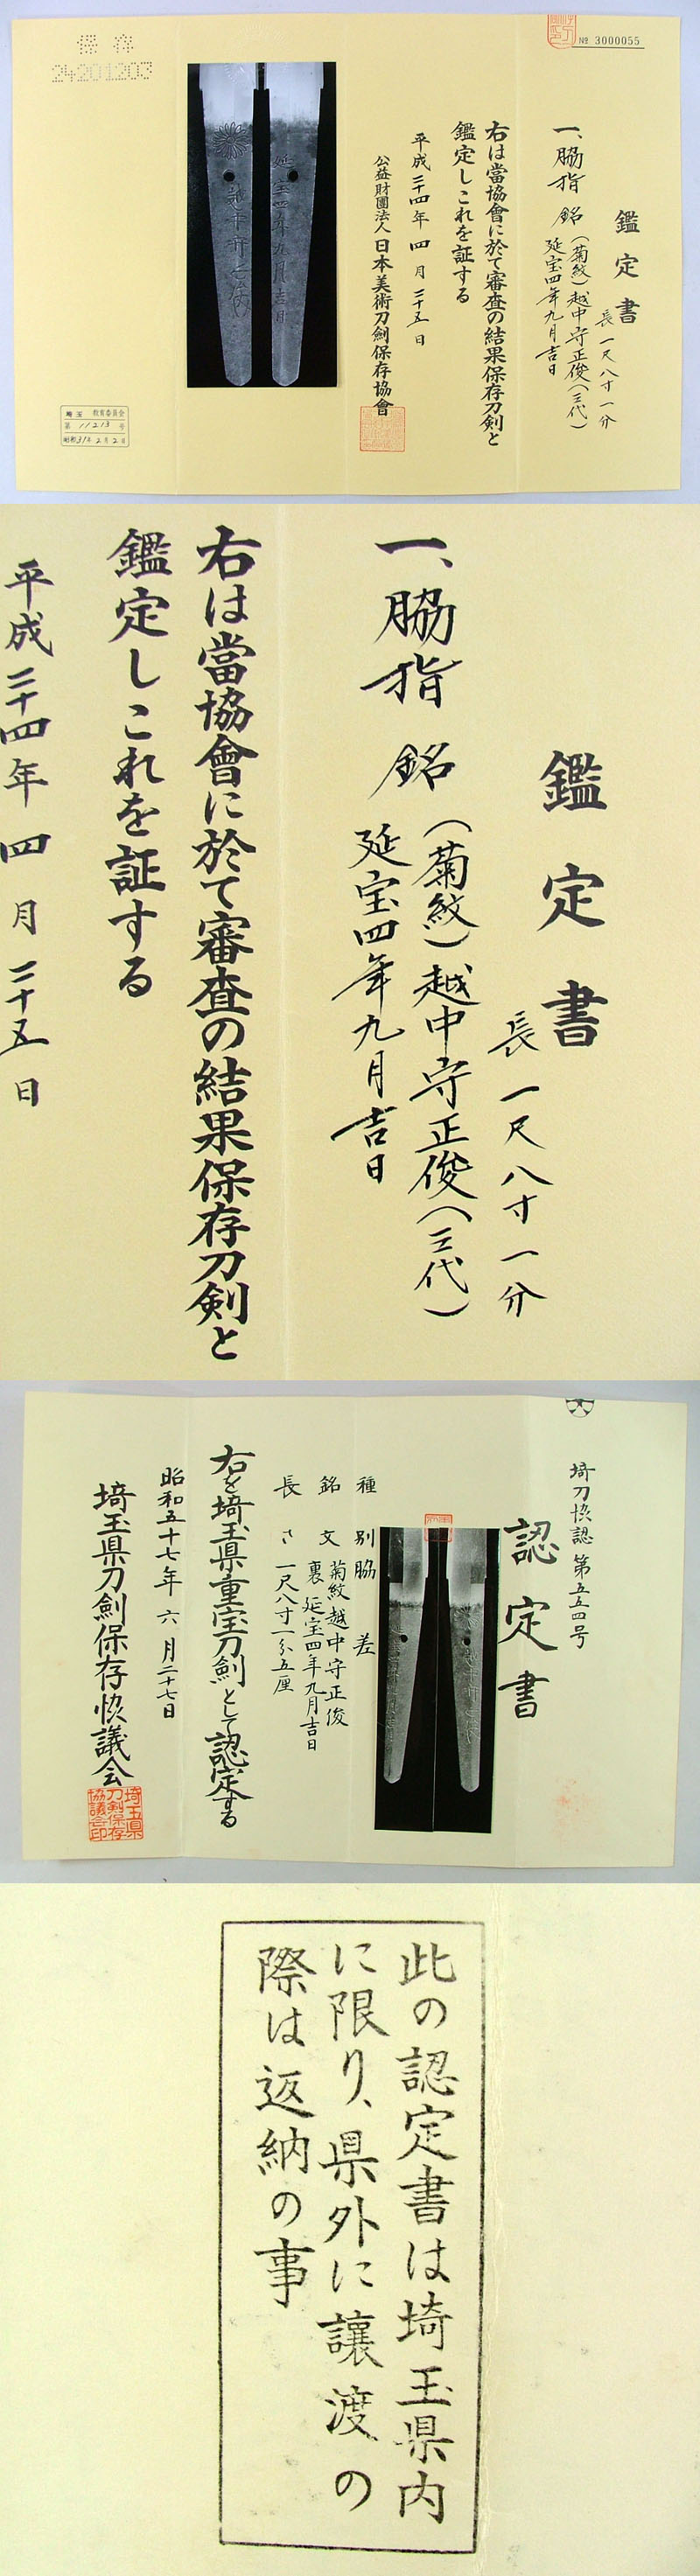 № 3000055
鑑定書
長 一尺八寸一分
一、脇指 銘 (菊紋)越中守正俊(三代)
延宝四年九月吉日
右は當協會に於て審査の結果保存刀剣と
鑑定しこれを証する
平成二十四年 四月 二十五日
公益財團法人 日本美術刀劍保存協會
延宝四年九月吉日
保存
24201203
埼玉 教育委員会
第 11213 号
昭和31年2月2日
鑑定書
長 一尺八寸一分
一、脇指 銘 (菊紋)越中守正俊(三代)
延宝四年九月吉日
右は當協會に於て審査の結果保存刀剣と
鑑定しこれを証する
平成二十四年 四月 二十五日
埼刀協認 第五五四号
認定書
種別 脇差
銘文 菊紋越中守正俊
裏 延宝四年九月吉日
長さ 一尺八寸一分五厘
右を埼玉県重宝刀劍として認定する
昭和五十七年 六月二十七日
埼玉県刀劍保存協議会
埼玉県
刀剣保存
協議会印
此の認定書は埼玉県内
に限り、県外に譲渡の
際は返納の事